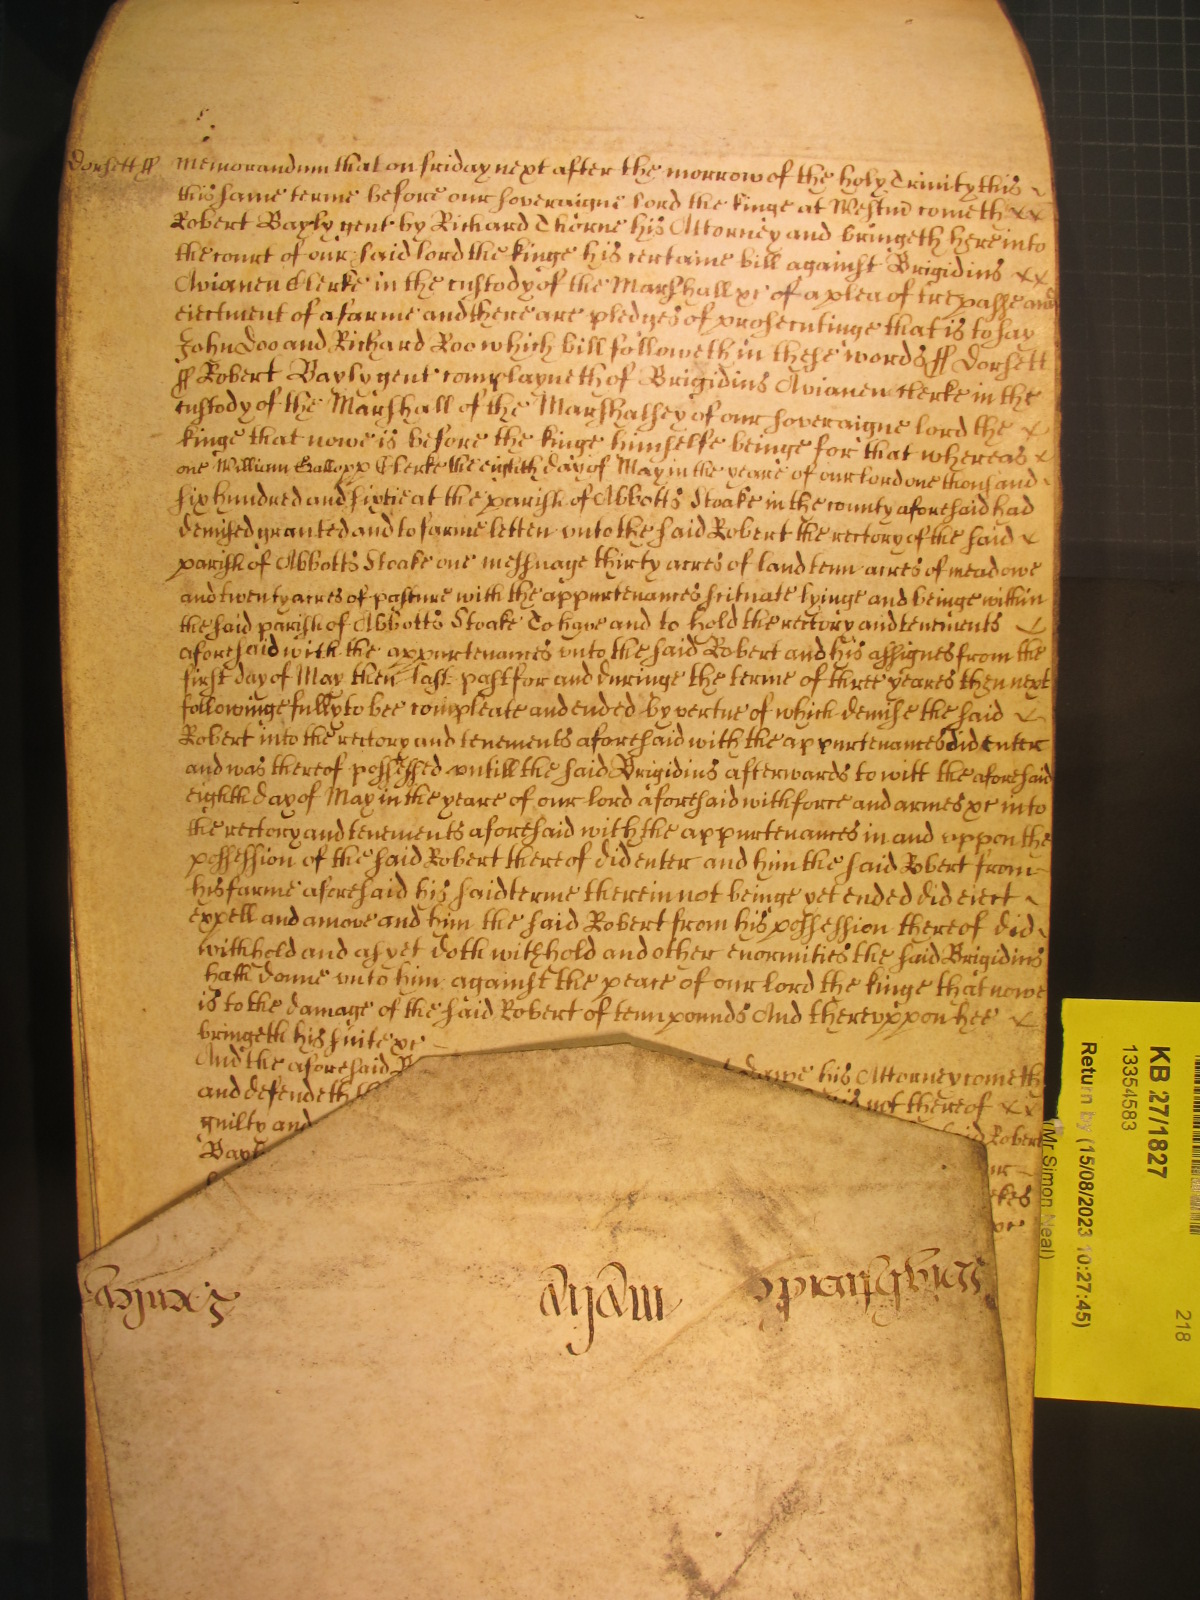 Dorsett ss Memorandum that on friday next after the morrow of the holy Trinity this
this same terme before our soveraigne lord the kinge at Westm̄ cometh xx
Robert Bayly gent by Richard Thorne his Attorney and bringeth here into
the court of our said lord the kinge his certaine bill against Brigidius xx
Avianen Clerke in the custody of the Marshall &c of a plea of trepasse and
eiectment of a farme and there are pledges of prosecutinge that is to say
John Doo and Richard Roo which bill followeth in these words ss Dorsett
ss Robert Bayly gent complayneth of Brigidius Avianen clerke in the
custody of the Marshall of the Marshalsey of our soveraigne lord the x
kinge that nowe is before the kinge himselfe beinge for that whereas x
one William Gallopp Clerke the eighth day of May in the yeare of our lord one thousand
six hundred and sixtie at the parish of Abbotts Stoake in the county aforesaid had
demised granted and to farme letten unto the said Robert the rectory of the said x
parish of Abbotts Stoake one messuage thirty acres of land tenn acres of meadowe
and twenty acres of pasture with the appurtenances scituate lyinge and beinge within
the said parish of Abbotts Stoake To have and to hold the rectory and tenements
aforesaid with the appurtenances unto the said Robert and his assignes from the
first day of May then last past for and duringe the terme of three yeares then next
followinge fully to bee compleate and ended by vertue of which demise the said
Robert into the rectory and tenements aforesaid with the appurtenances did enter
and was thereof possessed untill the said Brigidius afterwards to witt the aforesaid
eighth day of May in the yeare of our lord aforesaid with force and armes &c into
the rectory and tenements aforesaid with the appurtenances in and uppon the
possession of the said Robert thereof did enter and him the said Robert from
his farme aforesaid his said terme therein not beinge yet ended did eiect
expell and amove and him the said Robert from his possession thereof did
withhold and as yet doth withhold and other enormities the said Brigidius
hath donne unto him against the peace of our lord the kinge that nowe
is to the damage of the said Robert of tenn pounds And thereuppon hee
bringeth his suite &c
And the aforesaid B his Attorney cometh
and defendeth not thereof xx
guilty and said Robert
Bayl
KB 27/1827
13354583
Return by (15/08/2023 10:27:45)
(Mr Simon Neal)
218